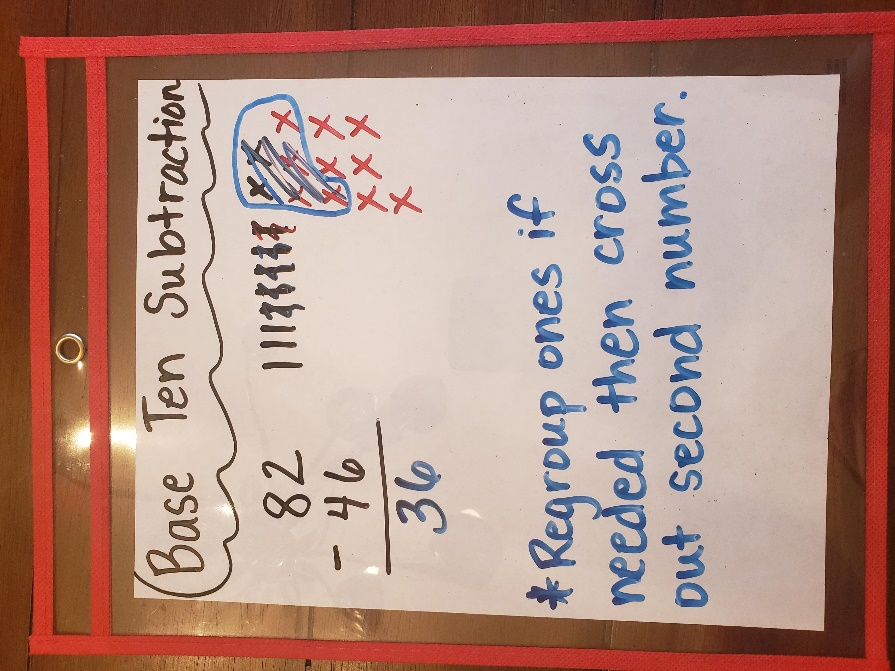 Base Ten Subtraction
82
- 46
36
*Regroup ones if
needed then cross
out second number.